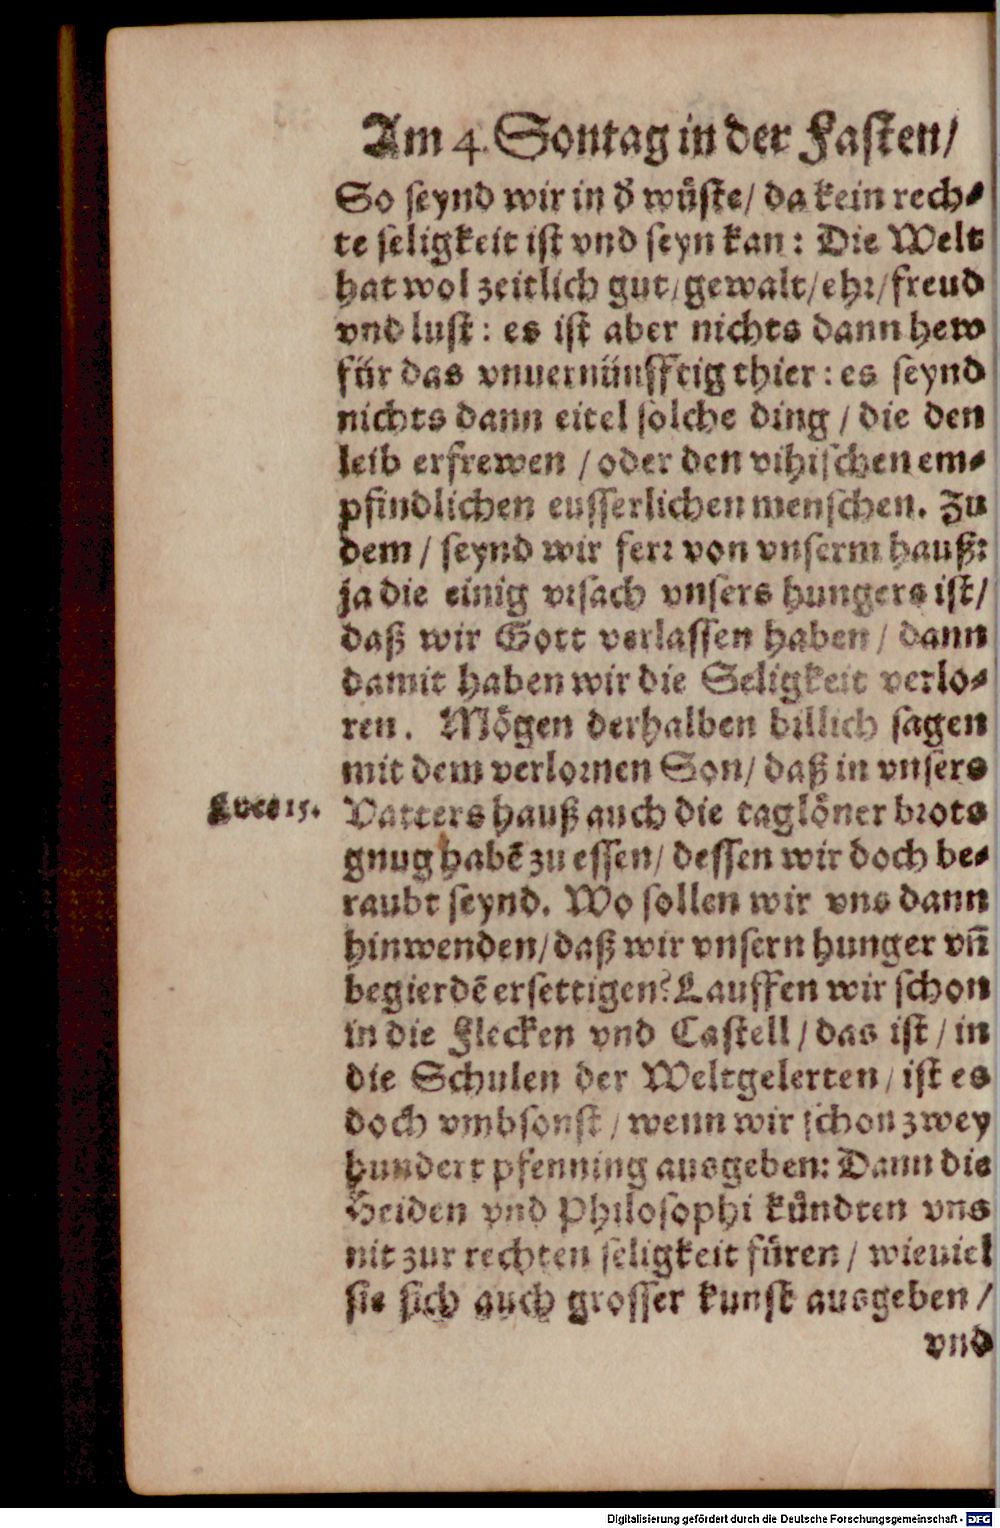 Am 4. Sontag in der Fasten/
So seynd wir in d̾ wüste/ da kein rech-
te seligkeit ist vnd seyn kan: Die Welt
hat wol zeitlich gut/ gewalt/ ehr/ freud
vnd lust: es ist aber nichts dann hew
für das vnuernünfftig thier: es seynd
nichts dann eitel solche ding / die den
leib erfrewen / oder den vihischen em-
pfindlichen eusserlichen menschen. Zu
dem / seynd wir ferr von vnserm hauß:
ja die einig vrsach vnsers hungers ist/
daß wir Gott verlassen haben / dann
damit haben wir die Seligkeit verlo-
ren. Mögen derhalben billich sagen
mit dem verlornen Son/ daß in vnsers
Luce 15. Vatters hauß auch die taglöner brots
gnug habē zu essen/ dessen wir doch be-
raubt seynd. Wo sollen wir vns dann
hinwenden/ daß wir vnsern hunger vñ
begierdē ersettigen? Lauffen wir schon
in die Flecken vnd Castell / das ist / in
die Schulen der Weltgelerten / ist es
doch vmbsonst / wenn wir schon zwey
hundert pfenning ausgeben: Dann die
Heiden vnd Philosophi kündten vns
nit zur rechten seligkeit füren / wieuiel
sie sich auch grosser kunst ausgeben /
vnd
Digitalisierung gefördert durch die Deutsche Forschungsgemeinschaft - DFG